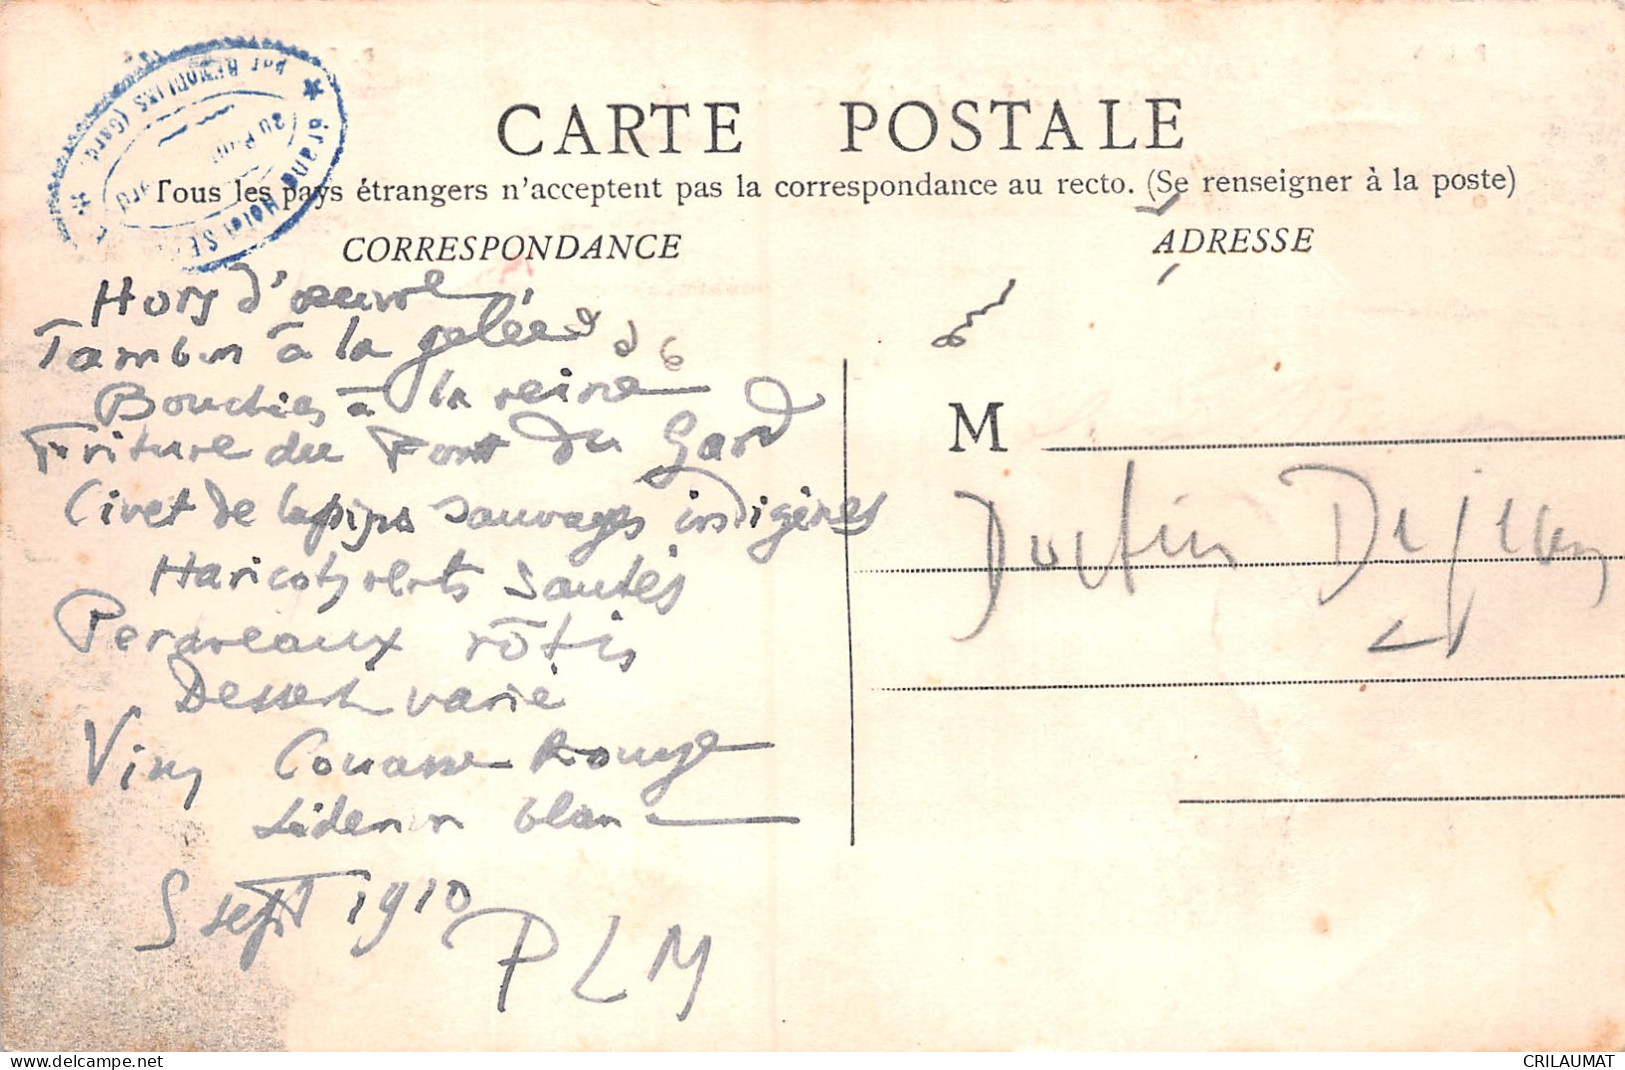 ★ Grand Hôtel
au Pont
par REMOULINS (Gard)
CARTE POSTALE
Tous les pays étrangers n'acceptent pas la correspondance au recto. (Se renseigner à la poste)
CORRESPONDANCE
ADRESSE
Hors d'oeuvre
à la gelée
Bouchées à la reine
Friture du Pont du Gard
Civet de lapins sauvages indigènes
Haricots verts sautés
Perdreaux rôtis
Dessert varié
Vins Rouge
Lédenon blanc
5 sept 1910
PLM
M
Dejean
delcampe.net
CRILAUMAT